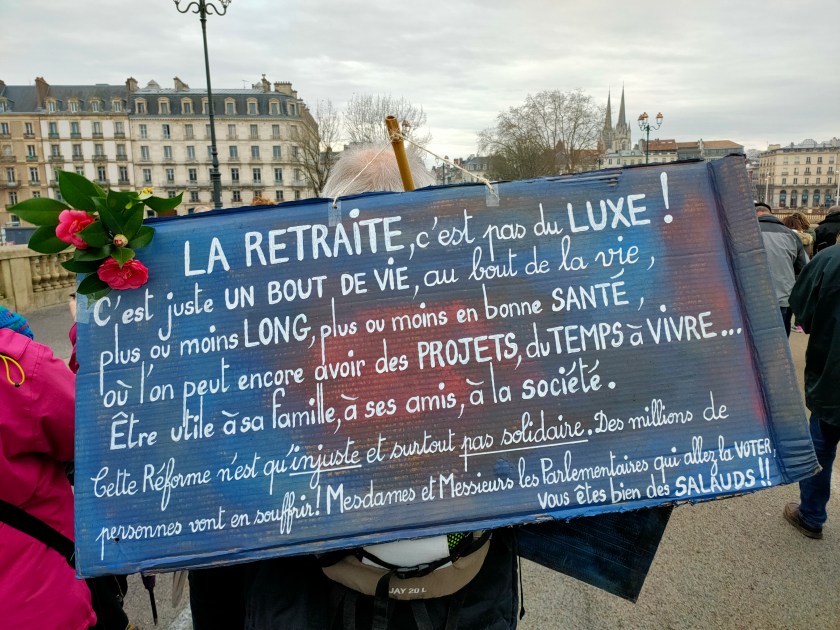 LA RETRAITE, c'est pas du LUXE !
C'est juste UN BOUT DE VIE, au bout de la vie,
plus ou moins LONG, plus ou moins en bonne SANTÉ,
où l'on peut encore avoir des PROJETS, du TEMPS à VIVRE...
Être utile à sa famille, à ses amis, à la société.
Cette Réforme n'est qu'injuste et surtout pas solidaire. Des millions de
personnes vont en souffrir! Mesdames et Messieurs les Parlementaires qui allez la VOTER,
vous êtes bien des SALAUDS !!
JAY 20 L